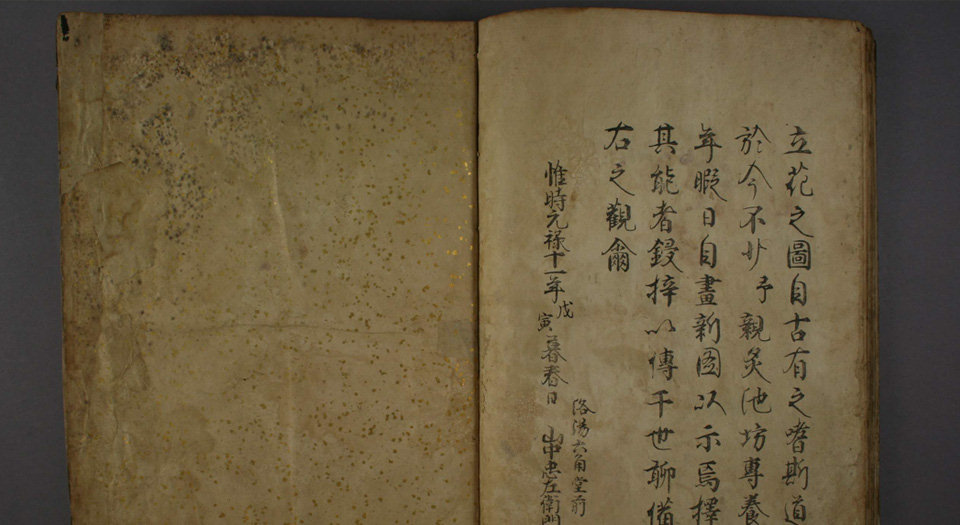 立花之圖自古有之嗜斯道
於今不少予親炙池坊專養
年暇日自畫新図以示焉擇
其能者鋟梓以傳于世聊備
右之觀爾
惟時元禄十一年戊寅暮春日
洛陽六角堂前
山中忠左衛門